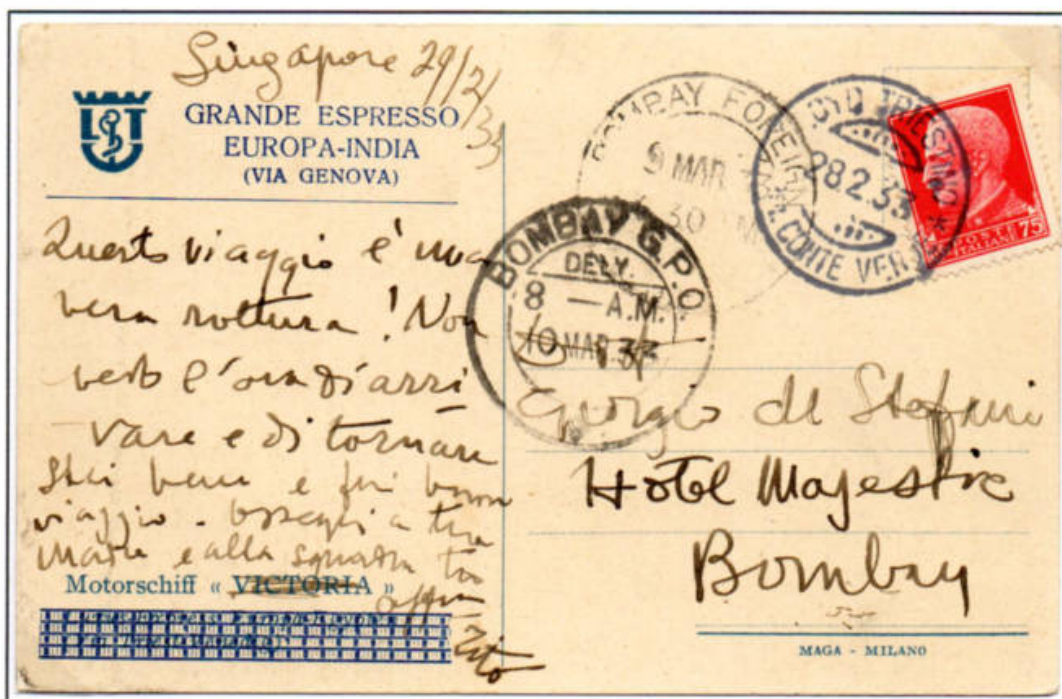 Singapore 29/2/33
LT
GRANDE ESPRESSO
EUROPA-INDIA
(VIA GENOVA)
Questo viaggio è una
vera rottura! Non
vedo l'ora di arri
vare e di tornare
Stai bene e fai buon
viaggio. Ossequi a tua
Madre e alla squadra tuo
Motorschiff « VICTORIA »
Tito
BOMBAY FOREIGN
9 MAR
30
BOMBAY G.P.O.
DELY.
8 — A.M.
10 MAR. 33
LLOYD TRIESTINO
28.2.33
"CONTE VERDE"
POSTE
ITALIANE 75
Giorgio de Stefani
Hotel Majestic
Bombay
MAGA - MILANO